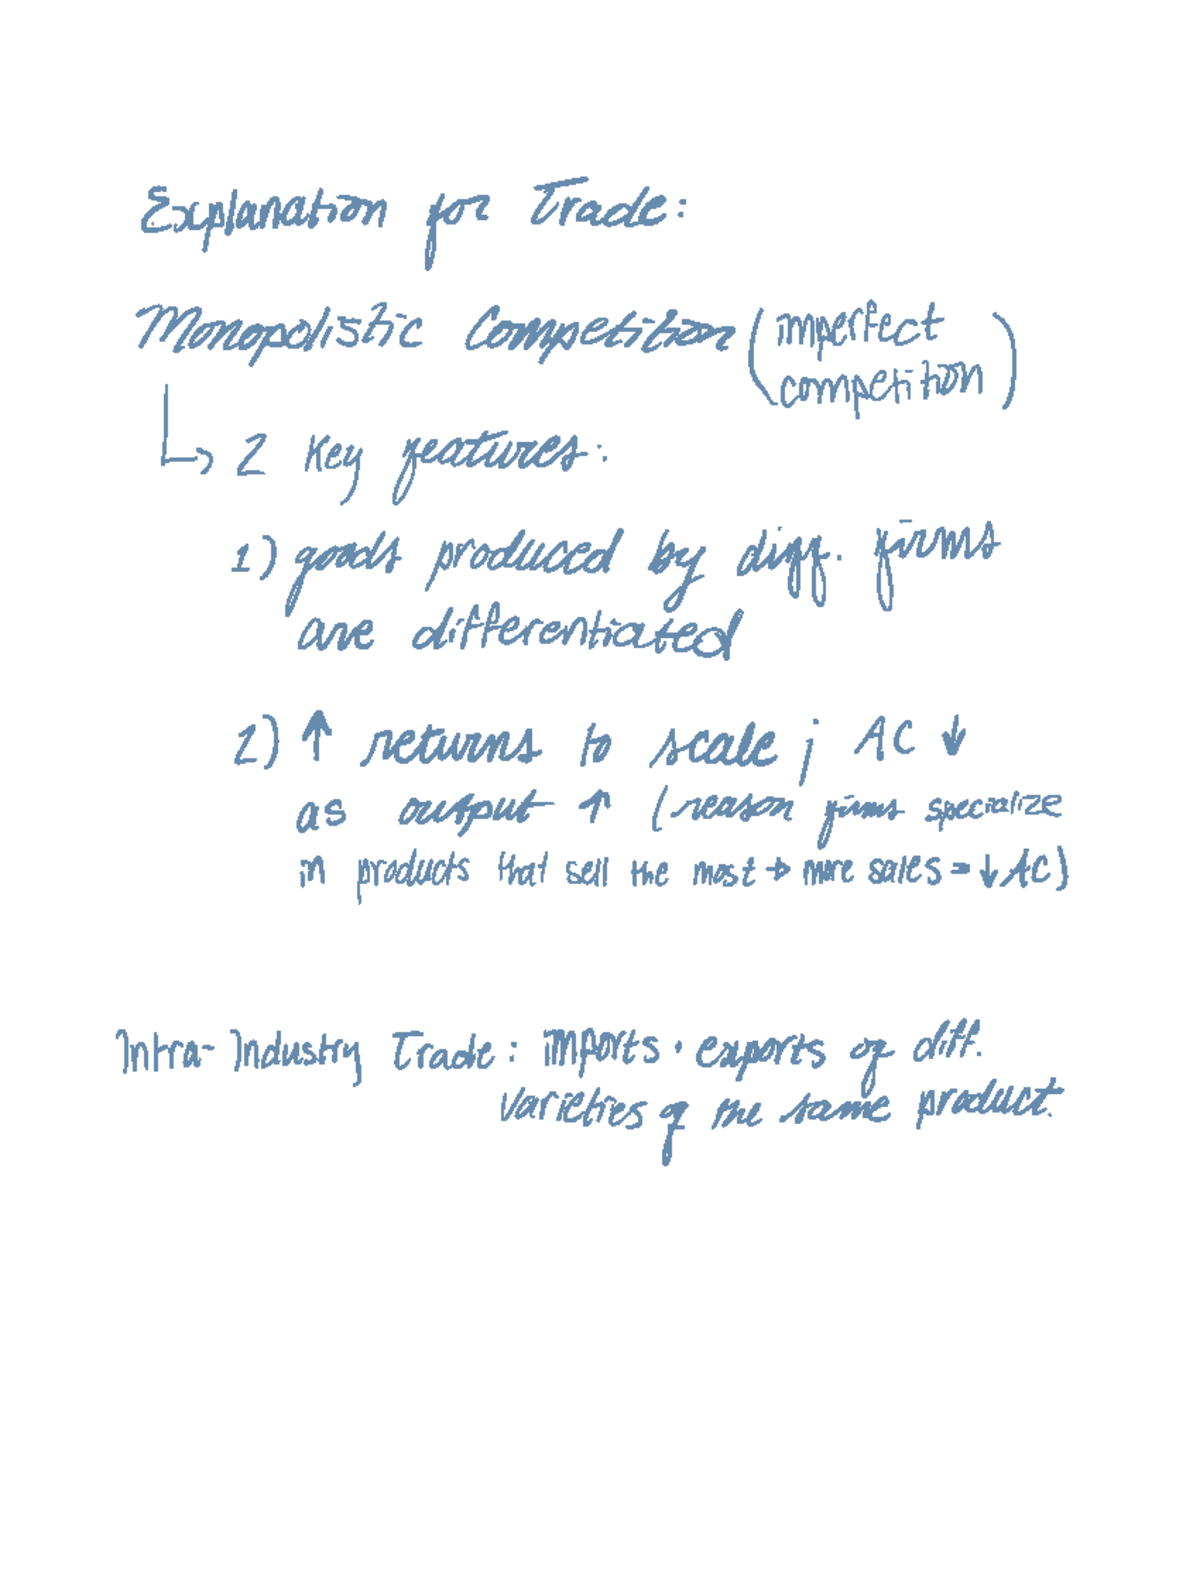 Explanation for Trade:
Monopolistic Competition (imperfect competition)
↳ 2 key features:
1) goods produced by diff. firms
are differentiated
2) ↑ returns to scale; AC ↓
as output ↑ (reason firms specialize
in products that sell the most → more sales = ↓ AC)
Intra-Industry Trade: imports · exports of diff.
varieties of the same product.